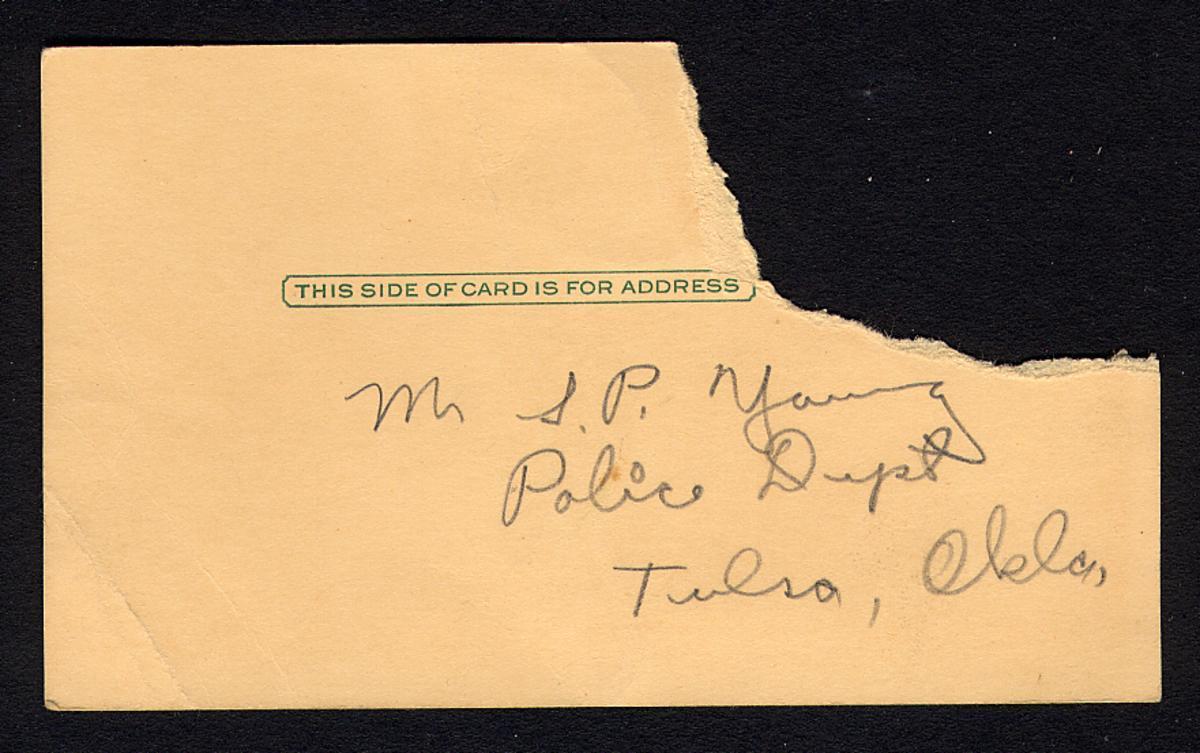 THIS SIDE OF CARD IS FOR ADDRESS
Mr S.P. Young
Police Dept
Tulsa, Okla,